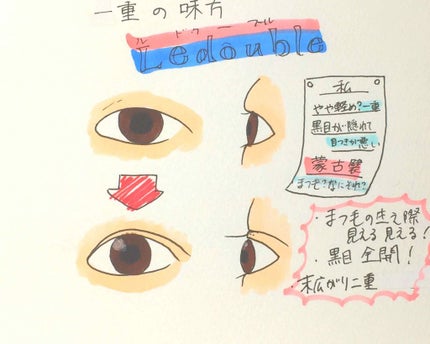 一重の味方
ルドゥーブル
Ledouble
私
やや軽め?一重
黒目が隠れて
目つきが悪い
蒙古襞
まつ毛?なにそれ?
・まつ毛の生え際
見える見える!
・黒目全開!
・末広がり二重